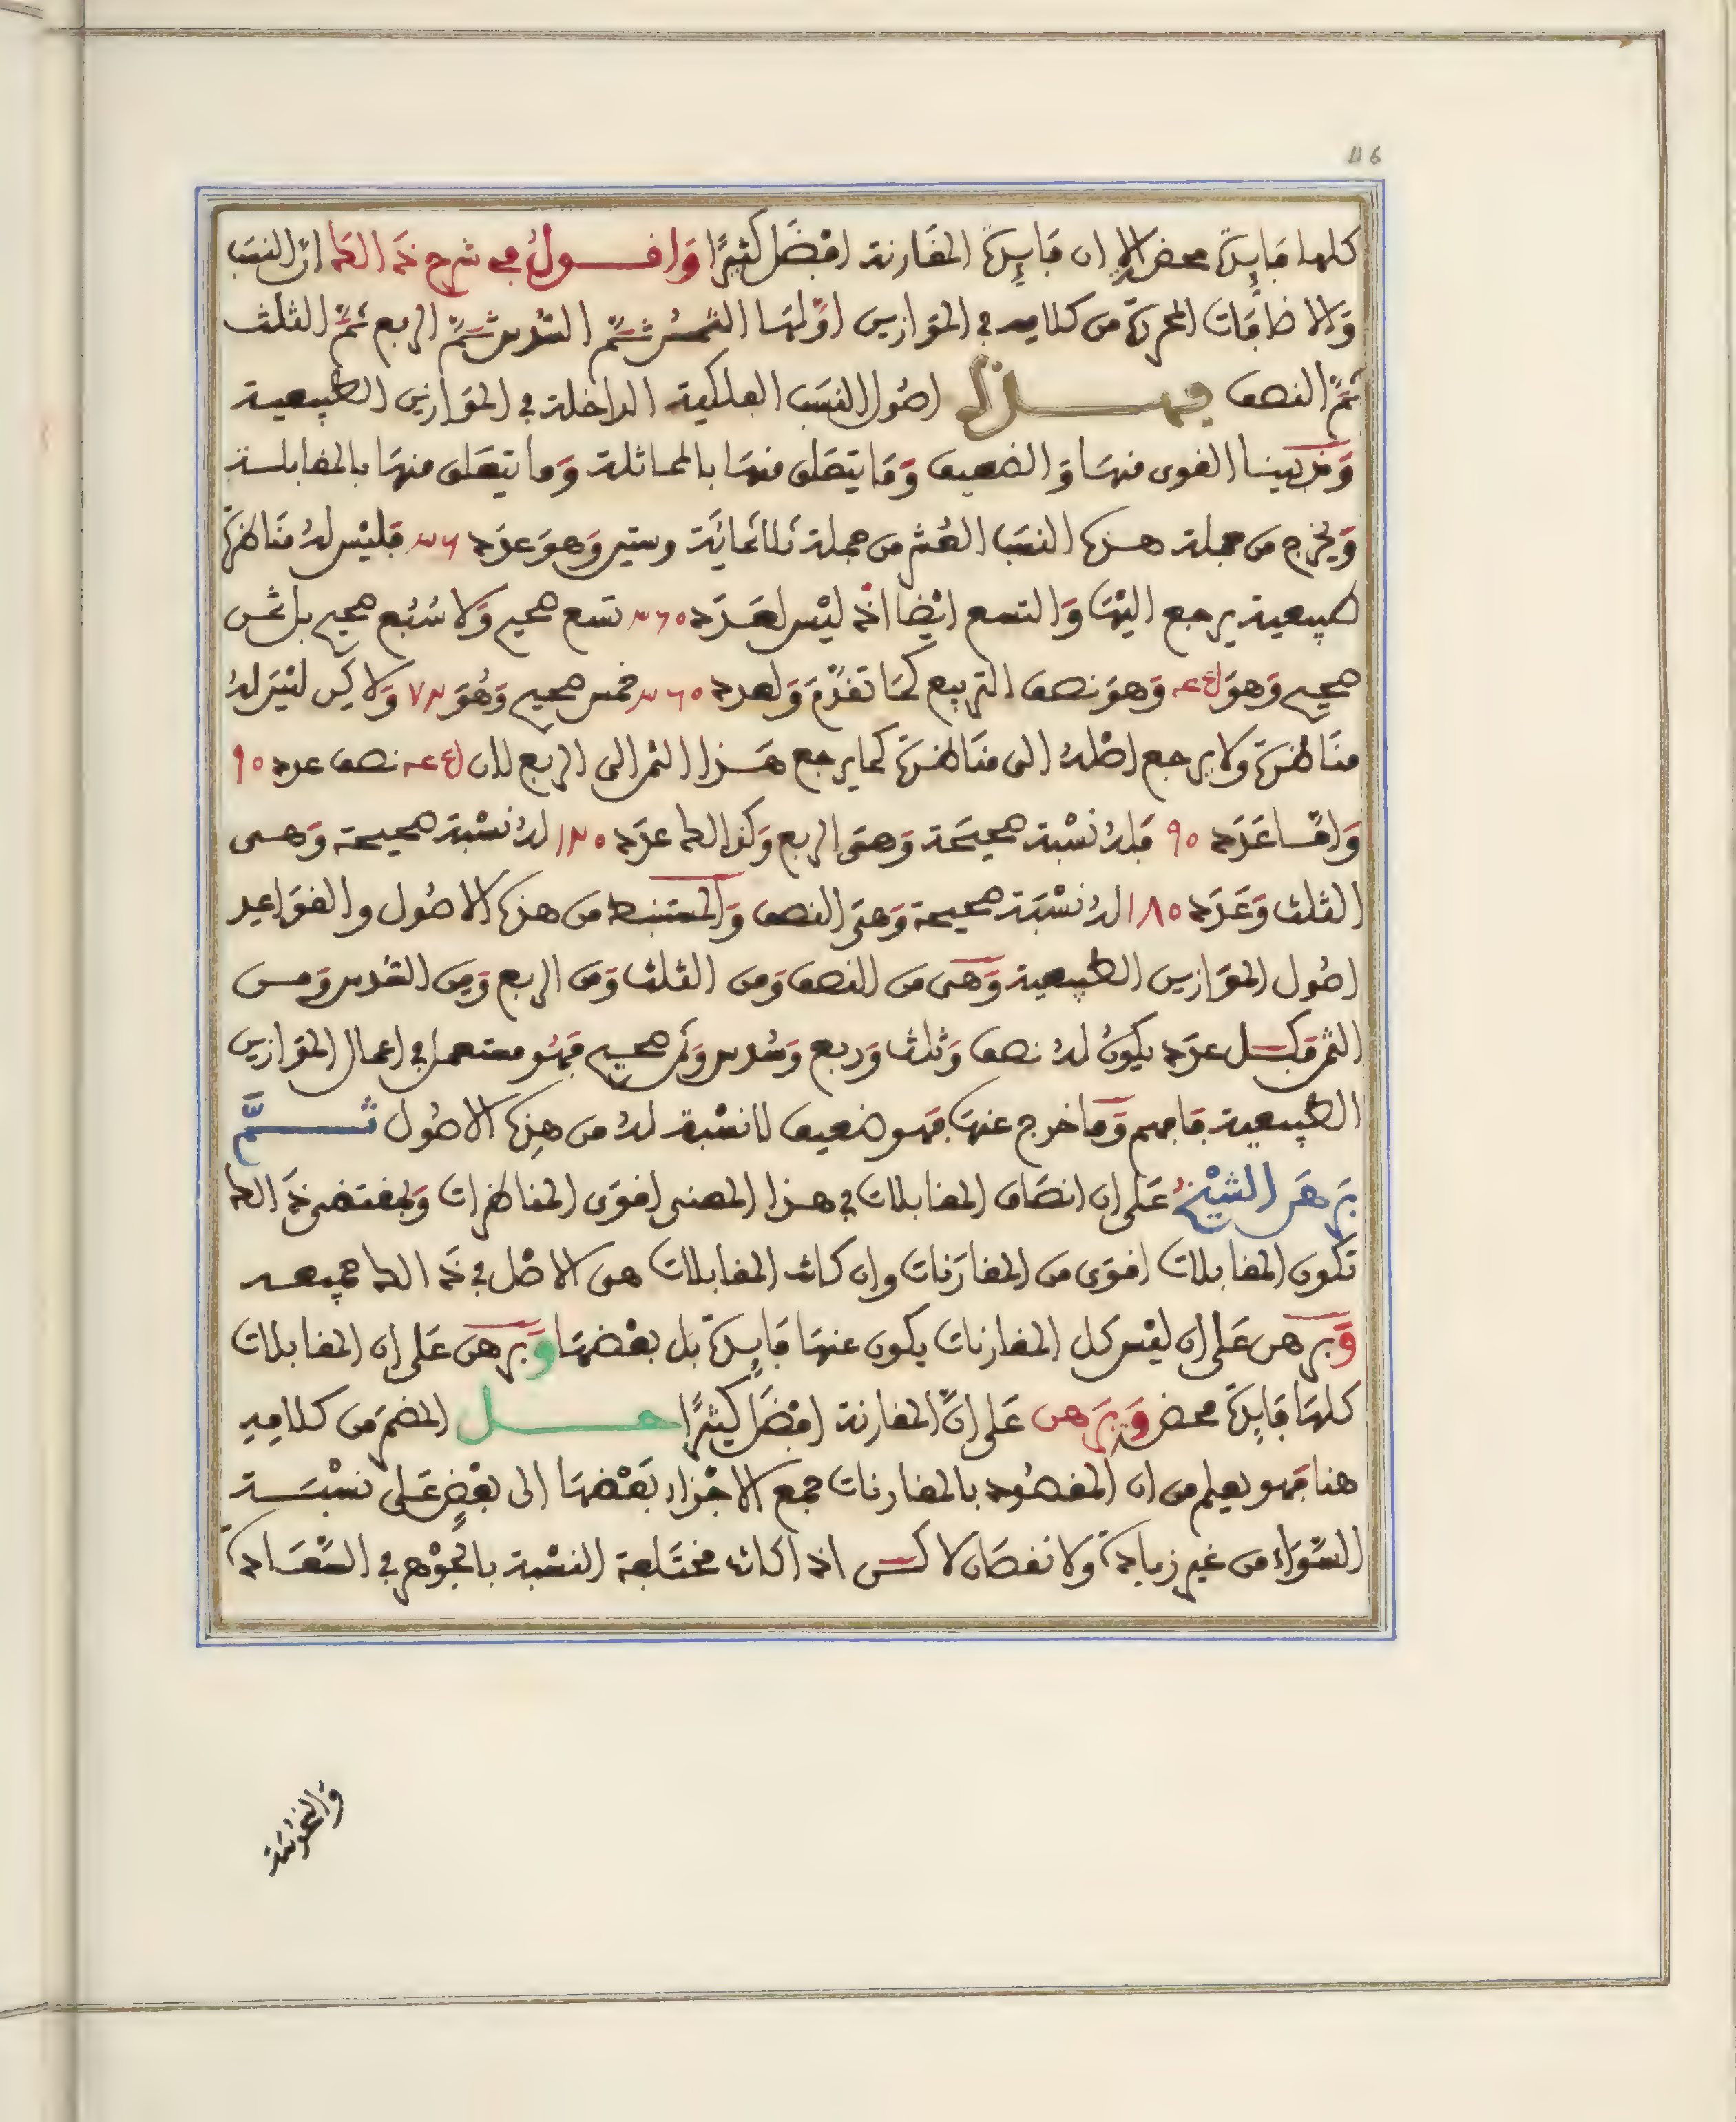 116
كلها فَايِدَةٌ محض الا ان فَايِدَةَ المقَارنة افْضَل كثيرًا وَاقـــول في شرح ذَالك انّ النسَب
وَالاضافَات المحررة من كلامه في المَوازين اوّلهَا الثّمن ثمّ السّدس ثمّ الربع ثمَّ الثلث
ثمّ النصف فهــــذه اصُول النسَب الفلكية الداخلة في المَوازين الطبيعية
وَقد بينا القوى منهَا وَالضعيف وَمَا يتعَلق منهَا بالمماثلة وَما يتعَلق منهَا بالمقابلة
وَيخرج من جملة هذه النسَب العُشر من جملة ثلاثمائَة وستين وَهوَ عدَد ٣٦ فَليْس لهُ منَاظرَة
طبيعية يرجع اليْهَا وَالتسع ايْضا اذْ ليْس لعَدَد ٣٦٠ تسع صحيح وَلا سُبُع صحيح بل ثمُن
صحيح وَهوَ ٤٥ وَهوَ نصف التربيع كمَا تقدّمَ وَلعدد ٣٦٠ خمس صحيح وَهُوَ ٧٢ وَلاكِن ليْسَ لهُ
منَاظرَة وَلا يرجع اصْلهُ الى منَاظرَة كما يرجع هَذا الثمن الى الربع لان ٤٥ نصف عدد ٩٠
وَامّا عَدَد ٩٠ فَلهُ نسْبة صحيحَة وَهيَ الربع وَكذالك عدَد ١٢٠ لهُ نسْبة صحيحة وَهـى
الثلث وَعَدَد ١٨٠ لهُ نسْبَة صحيحة وَهيَ النصف وَالمستنبط من هذه الاصُول والقوَاعِد
اصُول المَوَازين الطبيعية وَهىَ من النصف وَمن الثلث وَمن الربع وَمِن السّدس وَمـن
الثمن فَكـل عدَد يكونُ لهُ نصف وَثلث وَربع وَسُدس وَثمن صحيح فهُو مستعمل في اعمال المَوَازين
الطبيعية فافهم وَمَا خرج عنهَا فهو ضعيف لا نسْبة لهُ من هذِه الاصُول ثــــمَّ
بَرهَن الشيْخُ عَلى ان انصَاف المقابلات في هـذا المعنى اقوَى المناظرات وَبمقتضى ذَالك
تكون المقابلات اقوَى من المقارَنات وان كانت المقابلات هى الاصْل في ذَالك جميعـه
وَبرهن عَلى ان ليْس كل المقارنات يكون عنهَا فَايِدَة بل بعْضهَا وَبَرهَن عَلى ان المقابلات
كلهَا فَايِدَةٌ محض وَبَرَهن عَلى انّ المقارنة افْضَل كثيرًا حـــــل المضمَر من كلامِه
هنا فهو يعلم من ان المقصُود بالمقارنات جمع الاجْزاء بَعْضهَا الى بعْضٍ عَلى نسْبَـــة
السّوَاء من غير زيادَة وَلا نقصَان لاكــن اذا كانت مختَلفة النسْبة بالجَوْهر في السّعَـادَة
وَالنحُوسَة